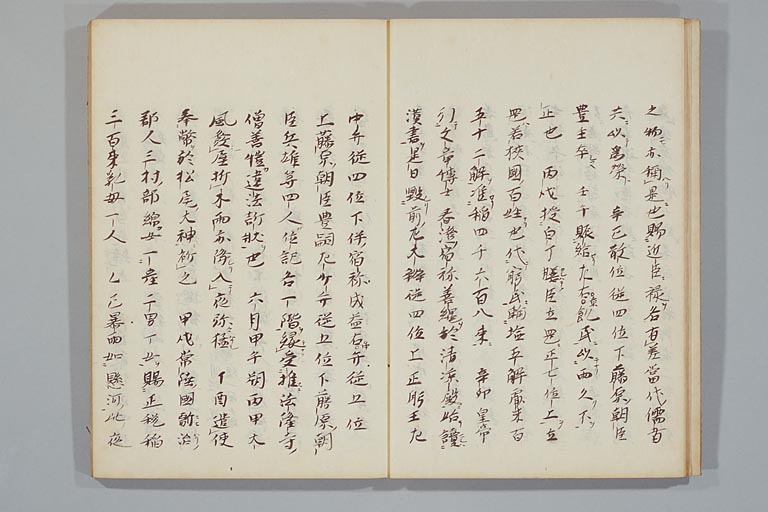 之物亦桶是也賜近臣禄各有差當代儒者
共以為榮 辛巳散位從四位下藤原朝臣
豊主卒 壬午賑給左右飢民以雨久不
止也 丙戌授白丁膳臣立岡正七位上立
岡若狹國百姓也代窮民輸塩五斛庸米百
五十二斛准稲四千六百八束 辛卯皇帝
引文章博士春澄宿祢善縄於清涼殿始讀
漢書是日毀前左大辨從四位上正躬王左
中弁從四位下伴宿祢成益右弁從五位
上藤原朝臣豊嗣左少弁從五位下藤原朝
臣兵雄等四人位記各一階縁受推法隆寺
僧善愷違法訴狀也 六月甲午朔丙申大
風發屋折木雨亦降入夜弥猛 丁酉遣使
奉幣於松尾大神祈之 甲戌常陸國新治
郡人三村部繪女一產二男一女賜正税稲
三百束乳母一人 乙巳暴雨如懸河此夜